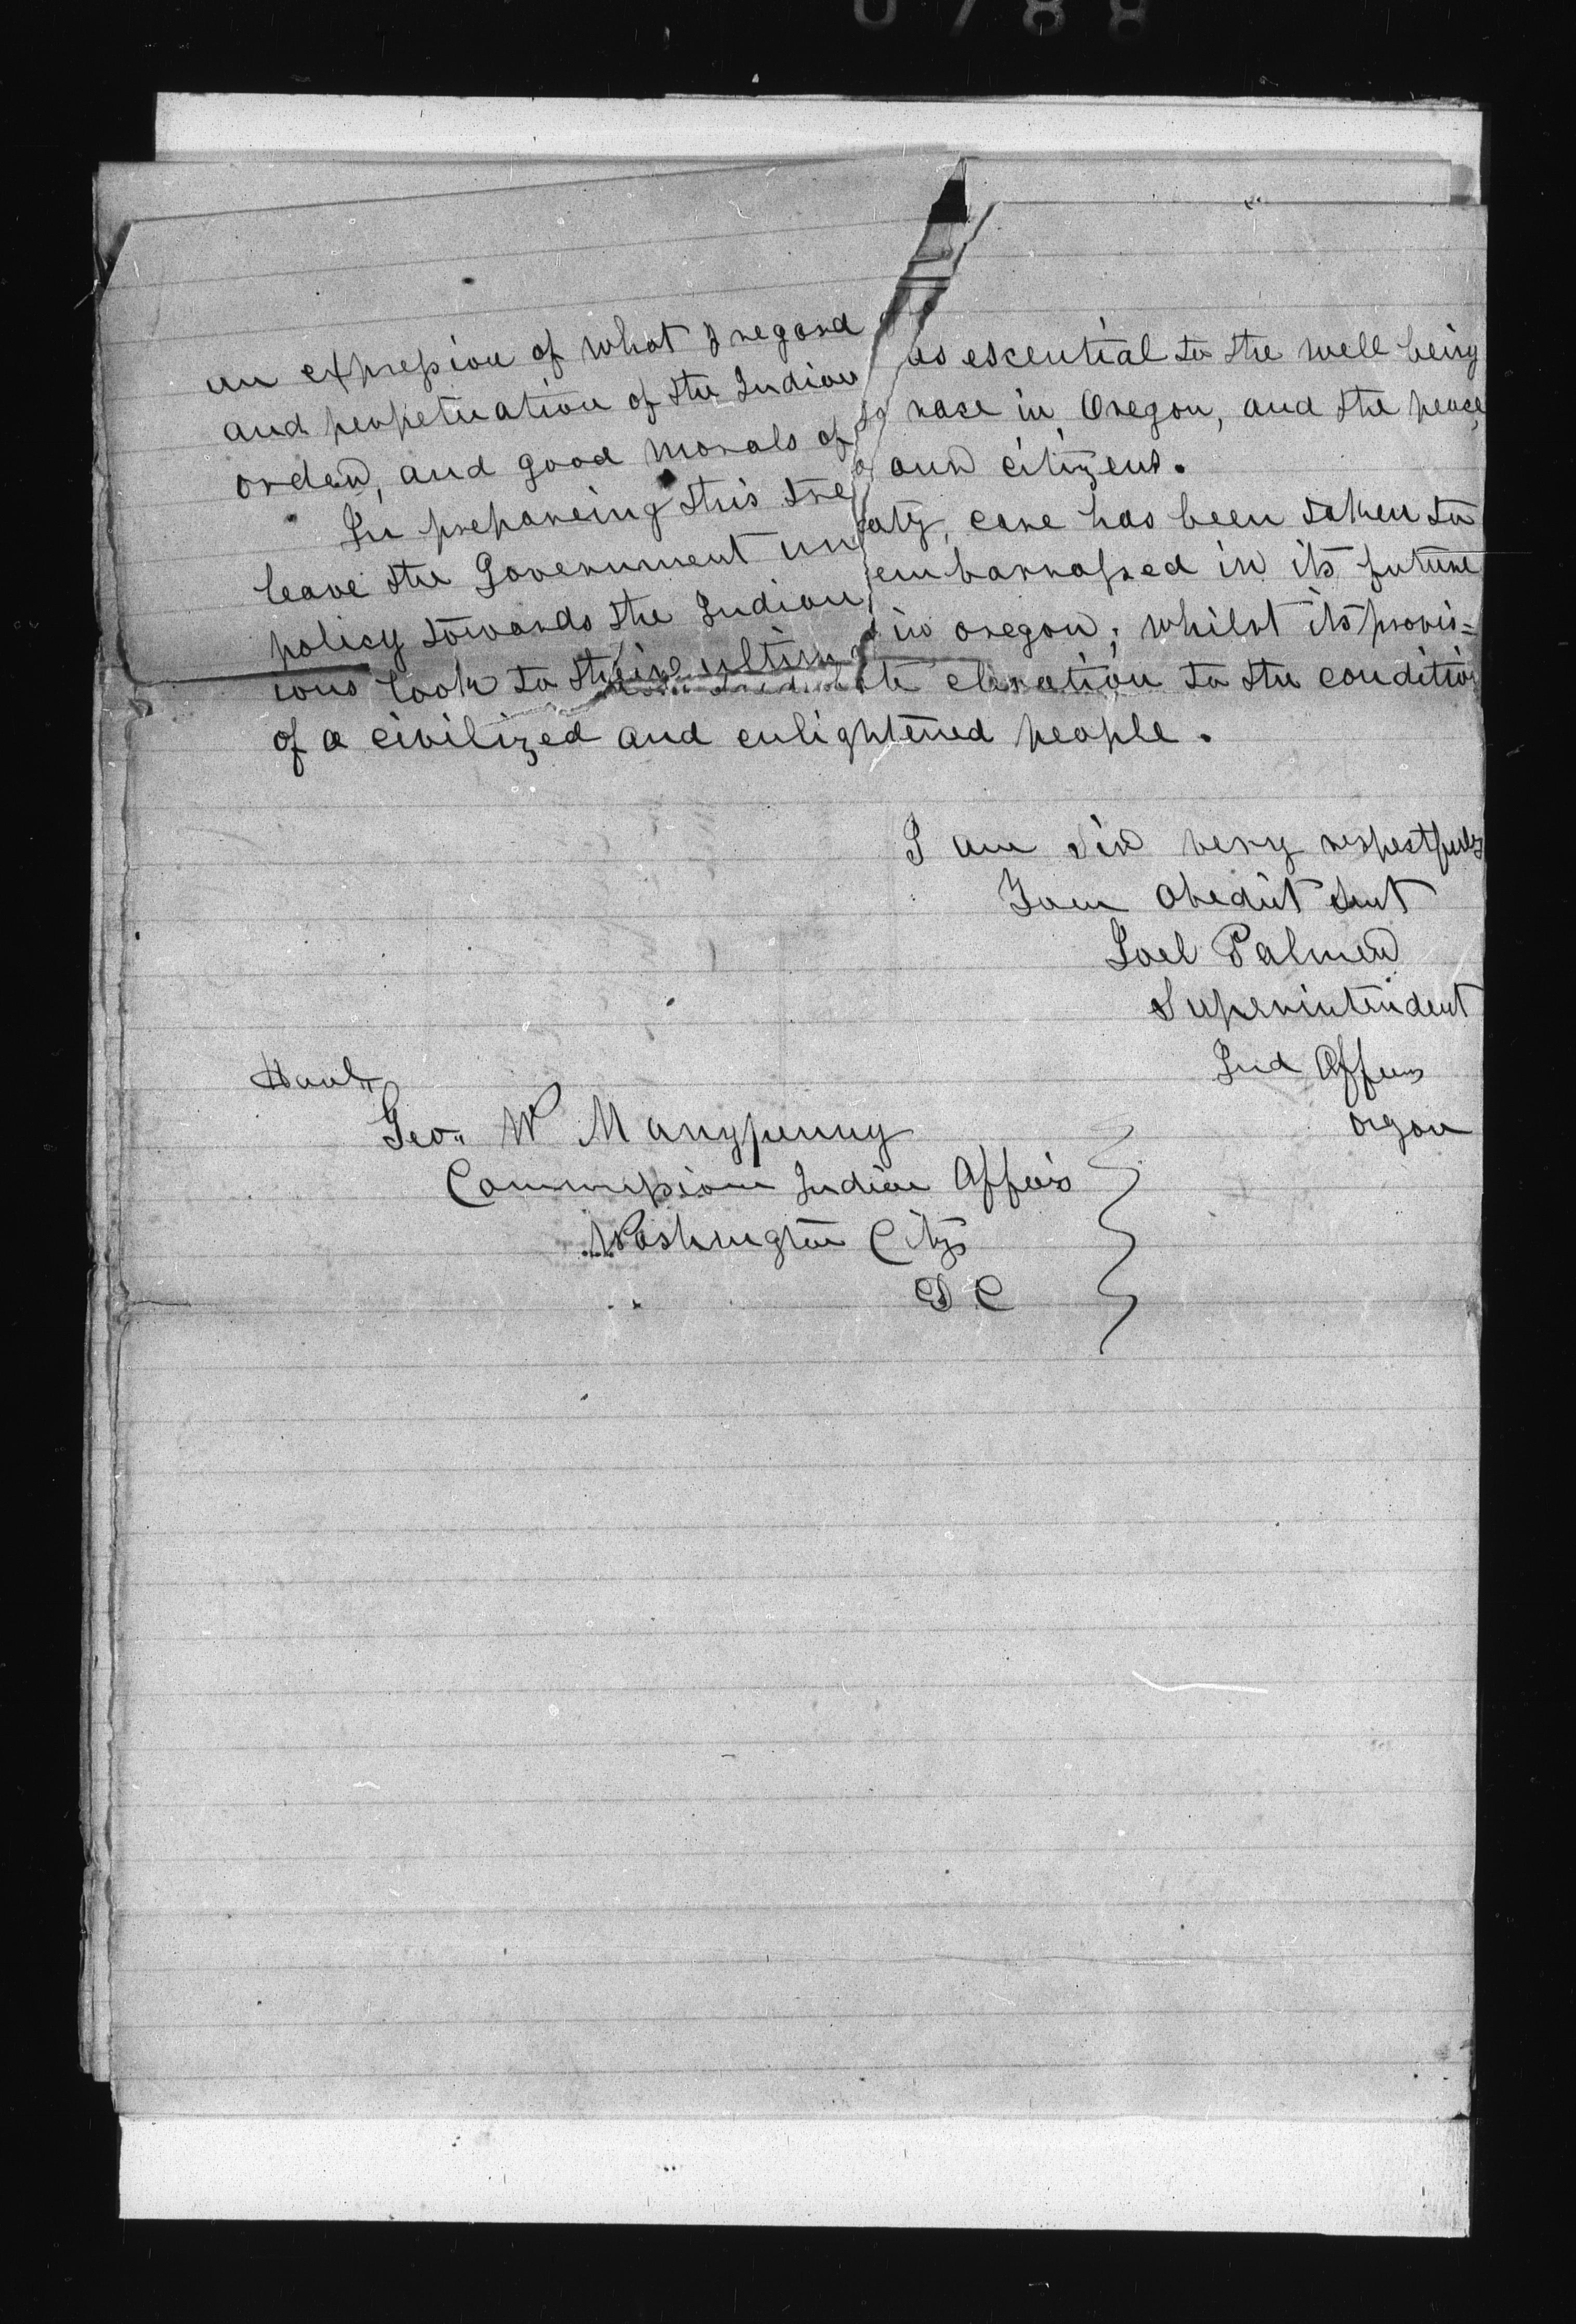 0788
an expression of what I regard as escential to the well being
and perpetuation of the Indian rase in Oregon, and the peace,
order, and good morals of our citizens.
In prepareing this treaty, care has been taken to
leave the Government unembarrassed in its future
policy towards the Indian in oregon; whilst its provis=
ions look to their ultimate elevation to the condition
of a civilized and enlightened people.
I am Sir very respectfully
Your Obedient Servt
Joel Palmer
Superintendent
Ind Affairs
Oregon
Honl.
Geo.. W Manypenny
Commissioner Indian Affairs
Washington City
D C